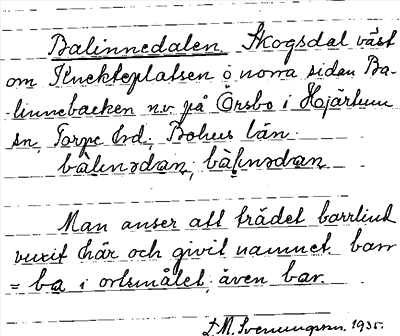 Balinnedalen Skogsdal väst
om Knekteplatsen o norra sidan Ba-
linnebacken n.v. på Örsbo i Hjärtum
sn, Torpe hd, Bohus län.
bàlınədan, bàlınədan
Man anser att trädet barrlind
vuxit här och givit namnet. barr
= ba i ortsmålet, även bar.
1935.